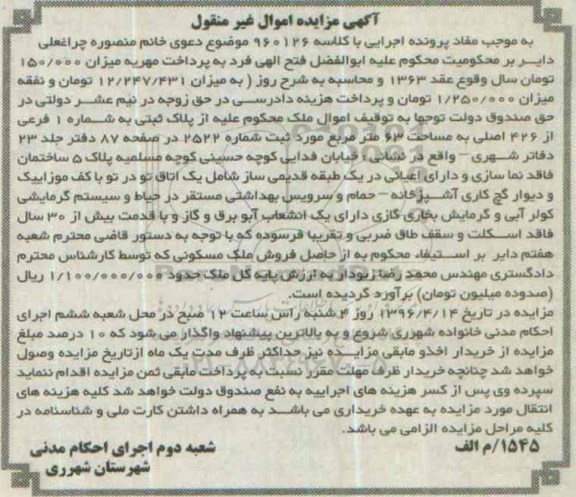 آگهی مزایده اموال غیر منقول
به موجب مفاد پرونده اجرایی با کلاسه ۹۶۰۱۲۶ موضوع دعوی خانم منصوره چراغعلی
دایر بر محکومیت محکوم علیه ابوالفضل فتح الهی فرد به پرداخت مهریه میزان ۱۵۰/۰۰۰
تومان سال وقوع عقد ۱۳۶۳ و محاسبه به شرح روز ( به میزان ۱۲/۲۴۷/۴۳۱ تومان و نفقه
میزان ۱/۲۵۰/۰۰۰ تومان و پرداخت هزینه دادرسی در حق زوجه در نیم عشر دولتی در
حق صندوق دولت توجها به توقیف اموال ملک محکوم علیه از پلاک ثبتی به شماره ۱ فرعی
از ۴۲۶ اصلی به مساحت ۶۳ متر مربع مورد ثبت شماره ۲۵۲۲ در صفحه ۸۷ دفتر جلد ۲۳
دفاتر شهری – واقع در نشانی: خیابان فدایی کوچه حسینی کوچه مسلمیه پلاک ۵ ساختمان
فاقد نما سازی و دارای اعیانی در یک طبقه قدیمی ساز شامل یک اتاق تو در تو با کف موزاییک
و دیوار گچ کاری آشپزخانه – حمام و سرویس بهداشتی مستقر در حیاط و سیستم گرمایشی
کولر آبی و گرمایش بخاری گازی دارای یک انشعاب آبو برق و گاز و با قدمت بیش از ۳۰ سال
فاقد اسکلت و سقف طاق ضربی و تقریبا فرسوده که با توجه به دستور قاضی محترم شعبه
هفتم دایر بر استیفاء محکوم به از حاصل فروش ملک مسکونی که توسط کارشناس محترم
دادگستری مهندس محمد رضا زیودار به ارزش پایه کل ملک حدود ۱/۱۰۰/۰۰۰/۰۰۰ ریال
(صدوده میلیون تومان) برآورد گردیده است.
مزایده در تاریخ ۱۳۹۶/۴/۱۴ روز ۴ شنبه راس ساعت ۱۲ صبح در محل شعبه ششم اجرای
احکام مدنی خانواده شهرری شروع و به بالاترین پیشنهاد واگذار می شود که ۱۰ درصد مبلغ
مزایده از خریدار اخذو مابقی مزایده نیز حداکثر ظرف مدت یک ماه ازتاریخ مزایده وصول
خواهد شد چنانچه خریدار ظرف مهلت مقرر نسبت به پرداخت مابقی ثمن مزایده اقدام ننماید
سپرده وی پس از کسر هزینه های اجراییه به نفع صندوق دولت خواهد شد کلیه هزینه های
انتقال مورد مزایده به عهده خریداری می باشد به همراه داشتن کارت ملی و شناسنامه در
کلیه مراحل مزایده الزامی می باشد.
۱۵۴۵/م الف
شعبه دوم اجرای احکام مدنی
شهرستان شهرری